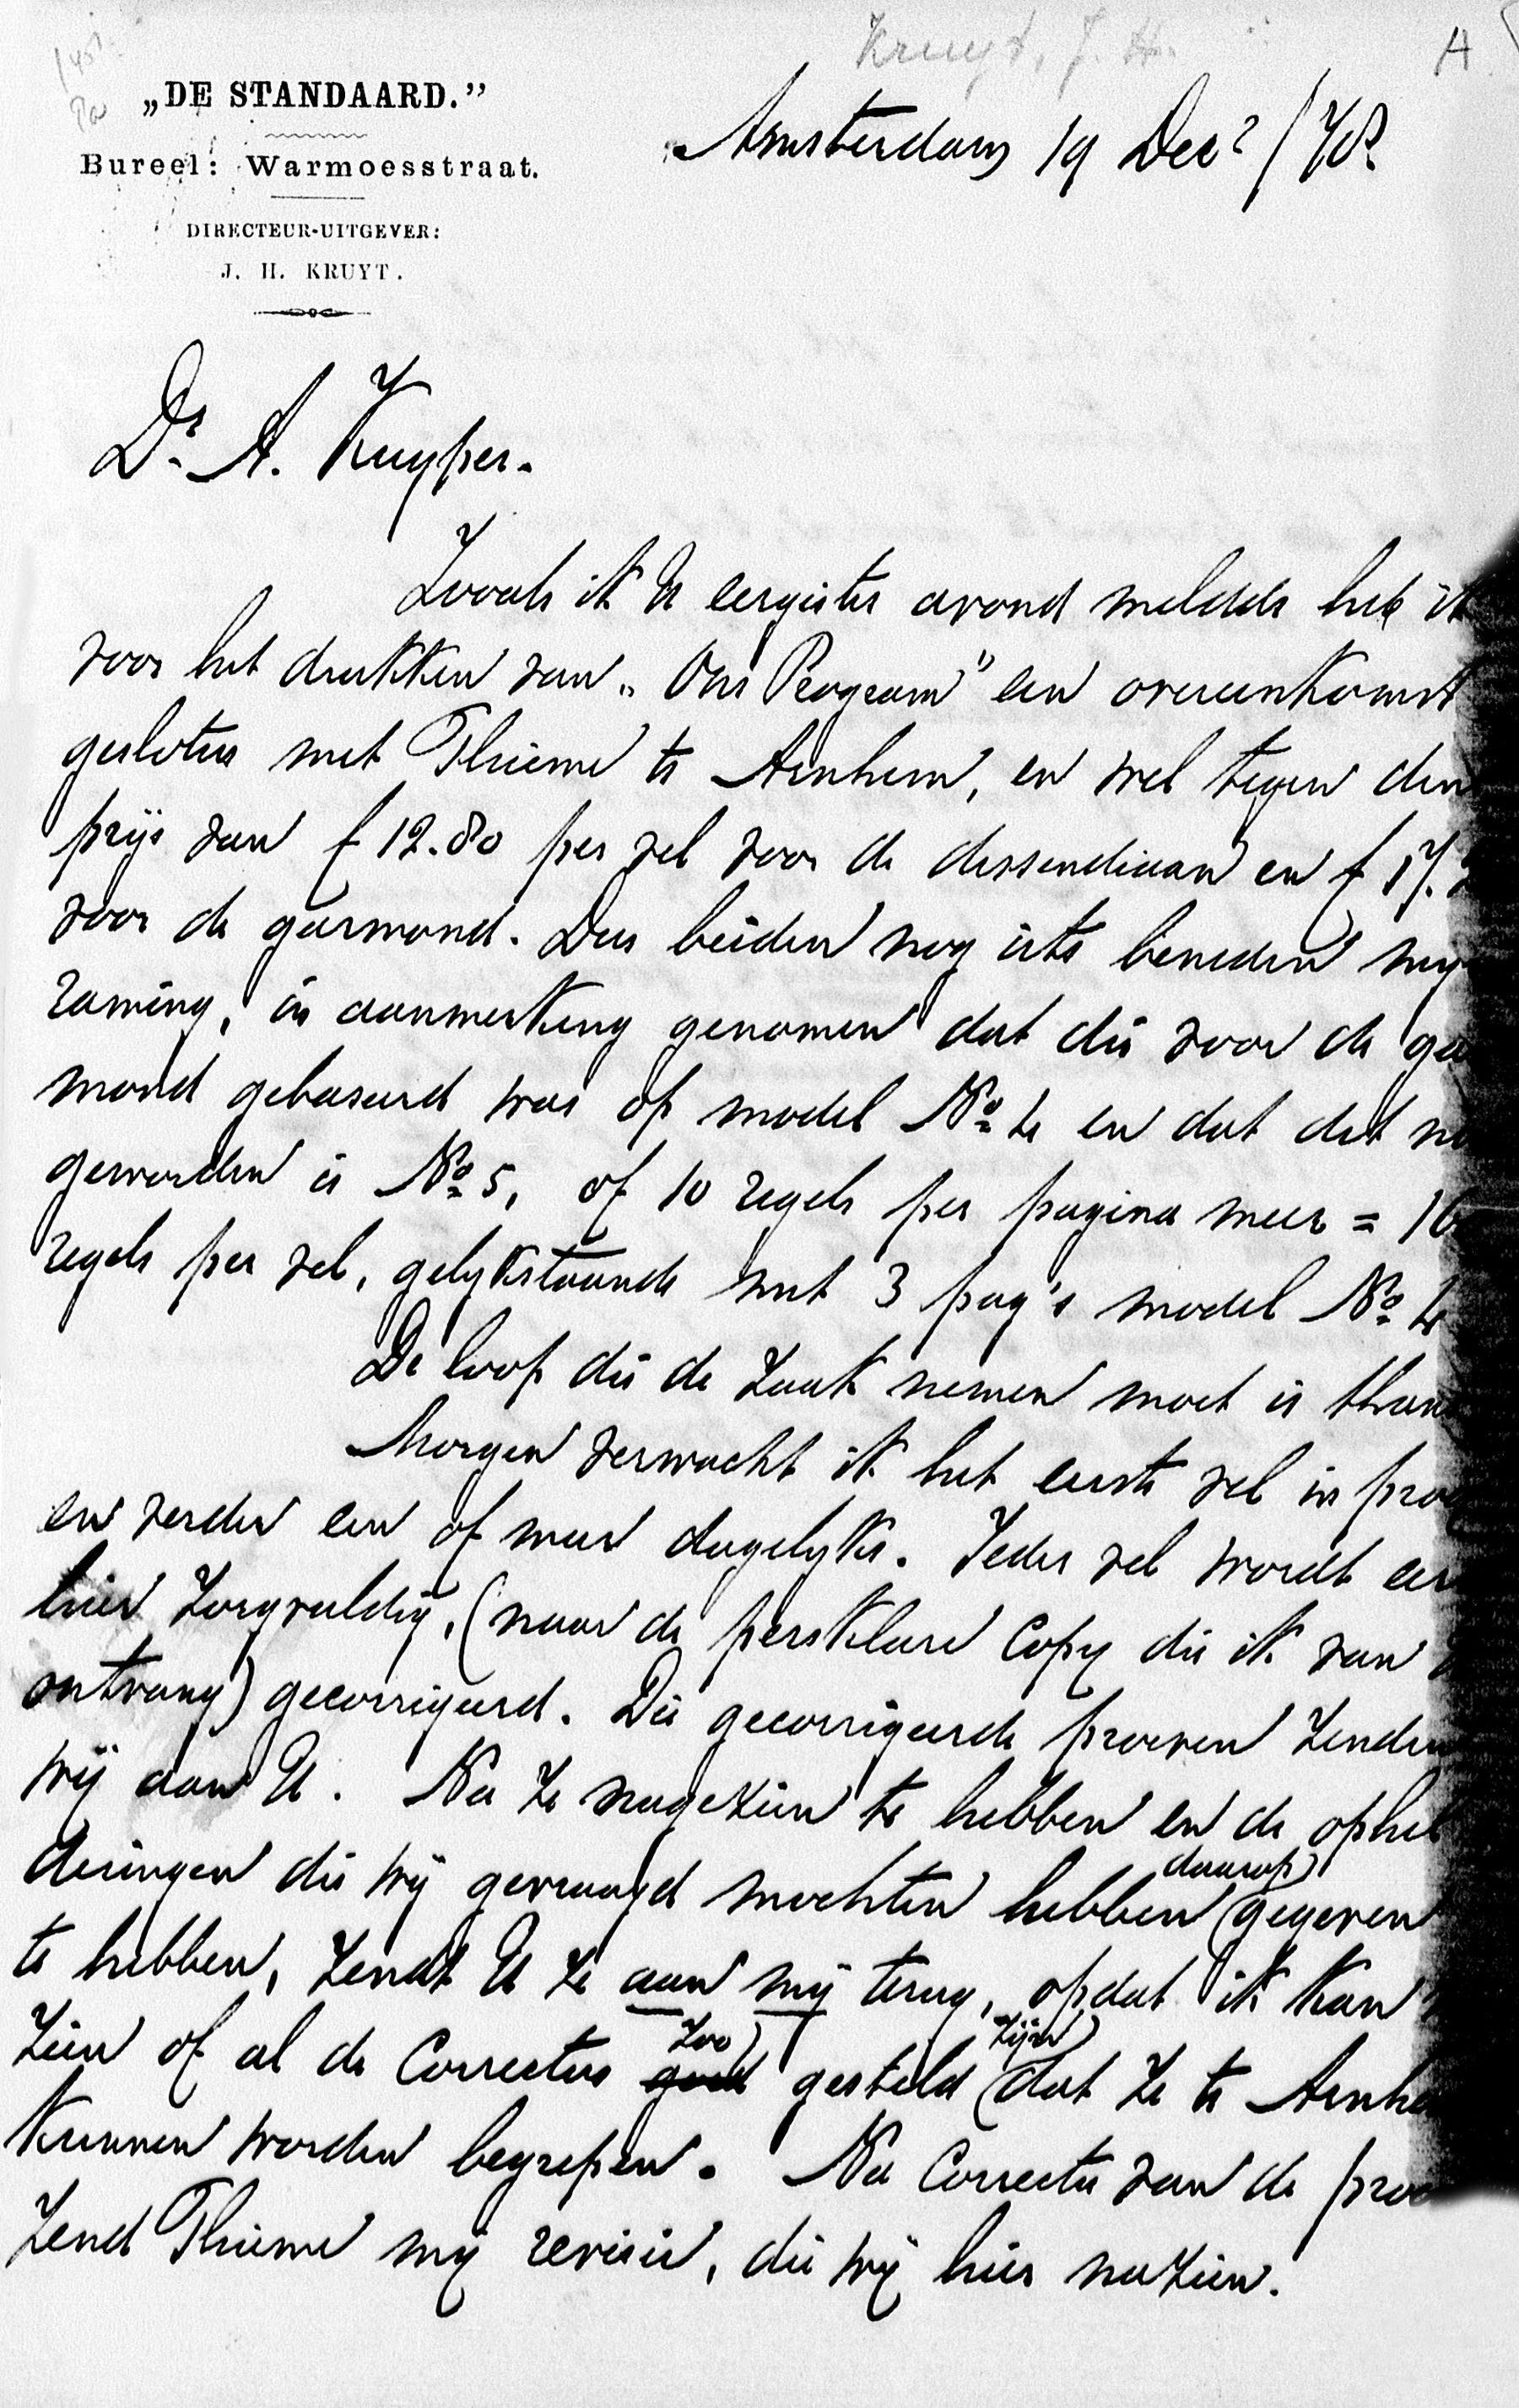 Kruyt, J. H.
A
„DE STANDAARD.”
Bureel: Warmoesstraat.
DIRECTEUR-UITGEVER:
J. H. KRUYT.
Amsterdam 19 Decr /78.
Dr. A. Kuyper.
Zooals ik U eergister avond meldde heb ik
voor het drukken van „Ons Program” een overeenkomst
gesloten met Thieme te Arnhem, en wel tegen den
prijs van f 12.80 per vel voor de dessendiaan en f 17.
voor de garmond. Dus beiden nog iets beneden mijn
raming, in aanmerking genomen dat die voor de gar
mond gebaseerd was op model No. 4 en dat dit nu
geworden is No. 5, of 10 regels per pagina meer = 16
regels per vel, gelykstaande met 3 pag's model No. 4
De loop die de zaak nemen moet is thans
Morgen verwacht ik het eerste vel in proef
en verder een of meer dagelyks. Ieder vel wordt eer
hier zorgvuldig, (naar de persklare copy die ik van
ontvang) gecorrigeerd. Die gecorrigeerde proeven zenden
wij aan U. Na ze nagezien te hebben en de ophel
deringen die wij gevraagd mochten hebben daarop gegeven
te hebben, zendt U ze aan mij terug, opdat ik kan
zien of al de correcties goed zoo gesteld zijn dat ze te Arnhem
kunnen worden begrepen. Na correctie van de proef
zend Thieme mij revisie, die wij hier nazien.